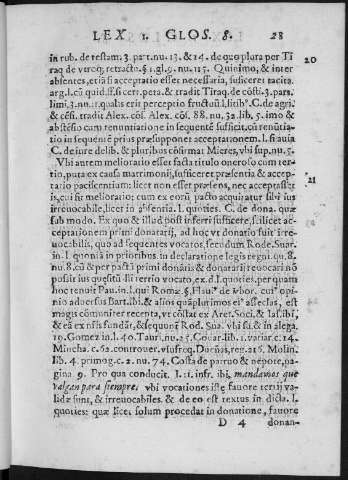 LEX 1. GLOS. 8. 28
in rub. de restam. 3. part. nu. 13. & 14. de quo plura per Ti
raq de vtroq; retractu. § 1. gl. 9. nu. 115. Quinimo, & inter 20
absentes, etiã si acceptatio esset necessaria, sufficeret tacita.
arg. l. cũ quid. ff. si cert. peta. & tradit Tiraq. de cõsti. 3. pars.
limi. 3. nu. 1. qualis erit perceptio fructuũ l. sitibº. C. de agri.
& cẽsi. tradit Alex. cõs. Alex. cõs. 88. nu. 32. lib. 5. imo &
abstẽsio cum renuntiatione in sequentẽ sufficit, cũ renũtia-
tio in sequentẽ prius præsupponet acceptationem. l. si auia
C. de iure delib. & pluribus cõfirmat Mieres, vbi sup. nu. 5.
Vbi autem melioratio esset facta titulo oneroso cum ter-
tio, puta ex causa matrimonij, sufficeret præsentia & accep-
tatio paciscentium: licet non esset præsens, nec acceptasset 21
is, cui fit melioratio: cum ex eorũ pacto acquiratur sibi ius
irreuocabile, licet in absentia. l. quoties. C. de dona. quæ
sub modo. Ex quo & illud post inferri sufficere, scilicet ac-
ceptationem primi donatarij, ad hoc vt donatio fuit irre-
uocabilis, quo ad sequentes vocatos, secundum Rode. Suar.
in l. quoniã in prioribus. in declaratione legis regni. qu. 8.
nu. 8. cũ & per pactũ primi donãtis & donatarij reuocari nõ
possit ius quesitũ illi tertio vocato, ex. d. l. quoties, per quam
hoc tenuit Pau. in l. qui Romæ §. Flauiº de verbor. cuiº opi-
nio aduersus Bart. ibi. & alios quãplurimos eiº asseclas, est
magis cõmuniter recepta, vt cõstat ex Aret. Soci. & Ias. ibi,
& eã ex nris fundãt, & sequunt Rod. Sua. vbi su. & in alega.
19. Gomez in l. 40. Tauri. nu. 25. Couar. lib. 1. variar. c. 14.
Mincha. c. 62. controuer. vsufreq. Dueñas, reg. 216. Molin.
lib. 4. primog. c. 2. nu. 74. Costa de patruo & nepote, pa-
gina 9. Pro qua conducit. l. 11. infr. ibi, mandamos que
valgan para siempre, vbi vocationes istæ fauore tertij va-
lidæ sunt, & irreuocabiles. & de eo est textus in dicta. l.
quoties: quæ licet solum procedat in donatione, fauore
D 4 donan-